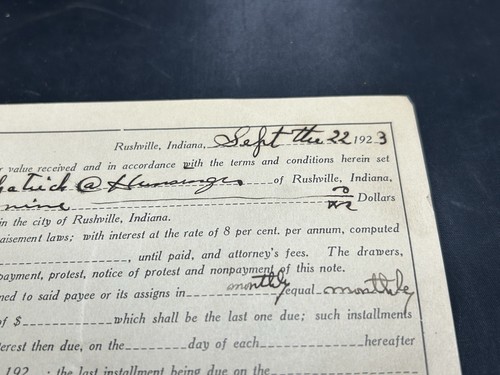 Rushville, Indiana, Sept the 22 1923
r value received and in accordance with the terms and conditions herein set
of Rushville, Indiana,
nine Dollars
in the city of Rushville, Indiana.
aisement laws; with interest at the rate of 8 per cent. per annum, computed
, until paid, and attorney's fees. The drawers,
payment, protest, notice of protest and nonpayment of this note.
ned to said payee or its assigns in monthly equal monthly
of $ which shall be the last one due; such installments
erest then due, on the day of each hereafter
192 ; the last installment being due on the